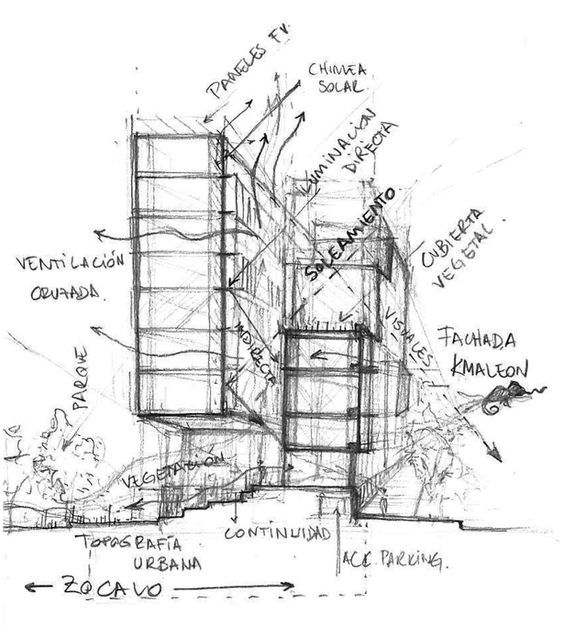 PANELES FV.
CHIMEA
SOLAR
ILUMINACION
DIRECTA
SOLEAMIENTO
CUBIERTA
VEGETAL.
VENTILACIÓN
CRUZADA.
INDIRECTA
VISUALES
FACHADA
KMALEON
PARQUE
VEGETACIÓN
TOPOGRAFÍA
URBANA
CONTINUIDAD
ACC. PARKING.
ZOCALO